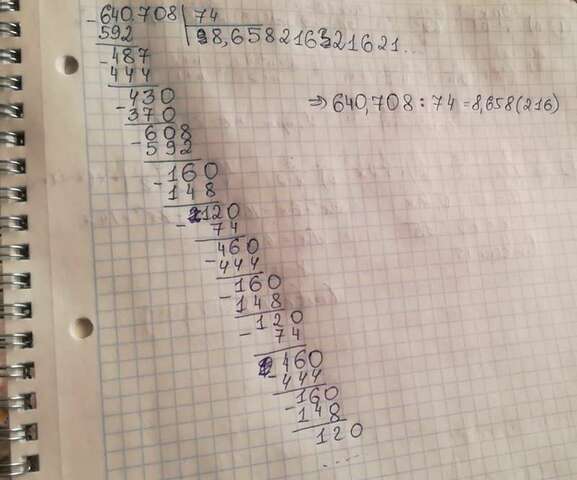 640,708 | 74
592 8,65821632 1621...
- 487
444
430
- 370
608
- 592
160
- 148
120
- 74
460
- 444
160
- 148
120
- 74
460
- 444
- 160
148
120
....
⇒ 640,708 : 74 = 8,658(216)